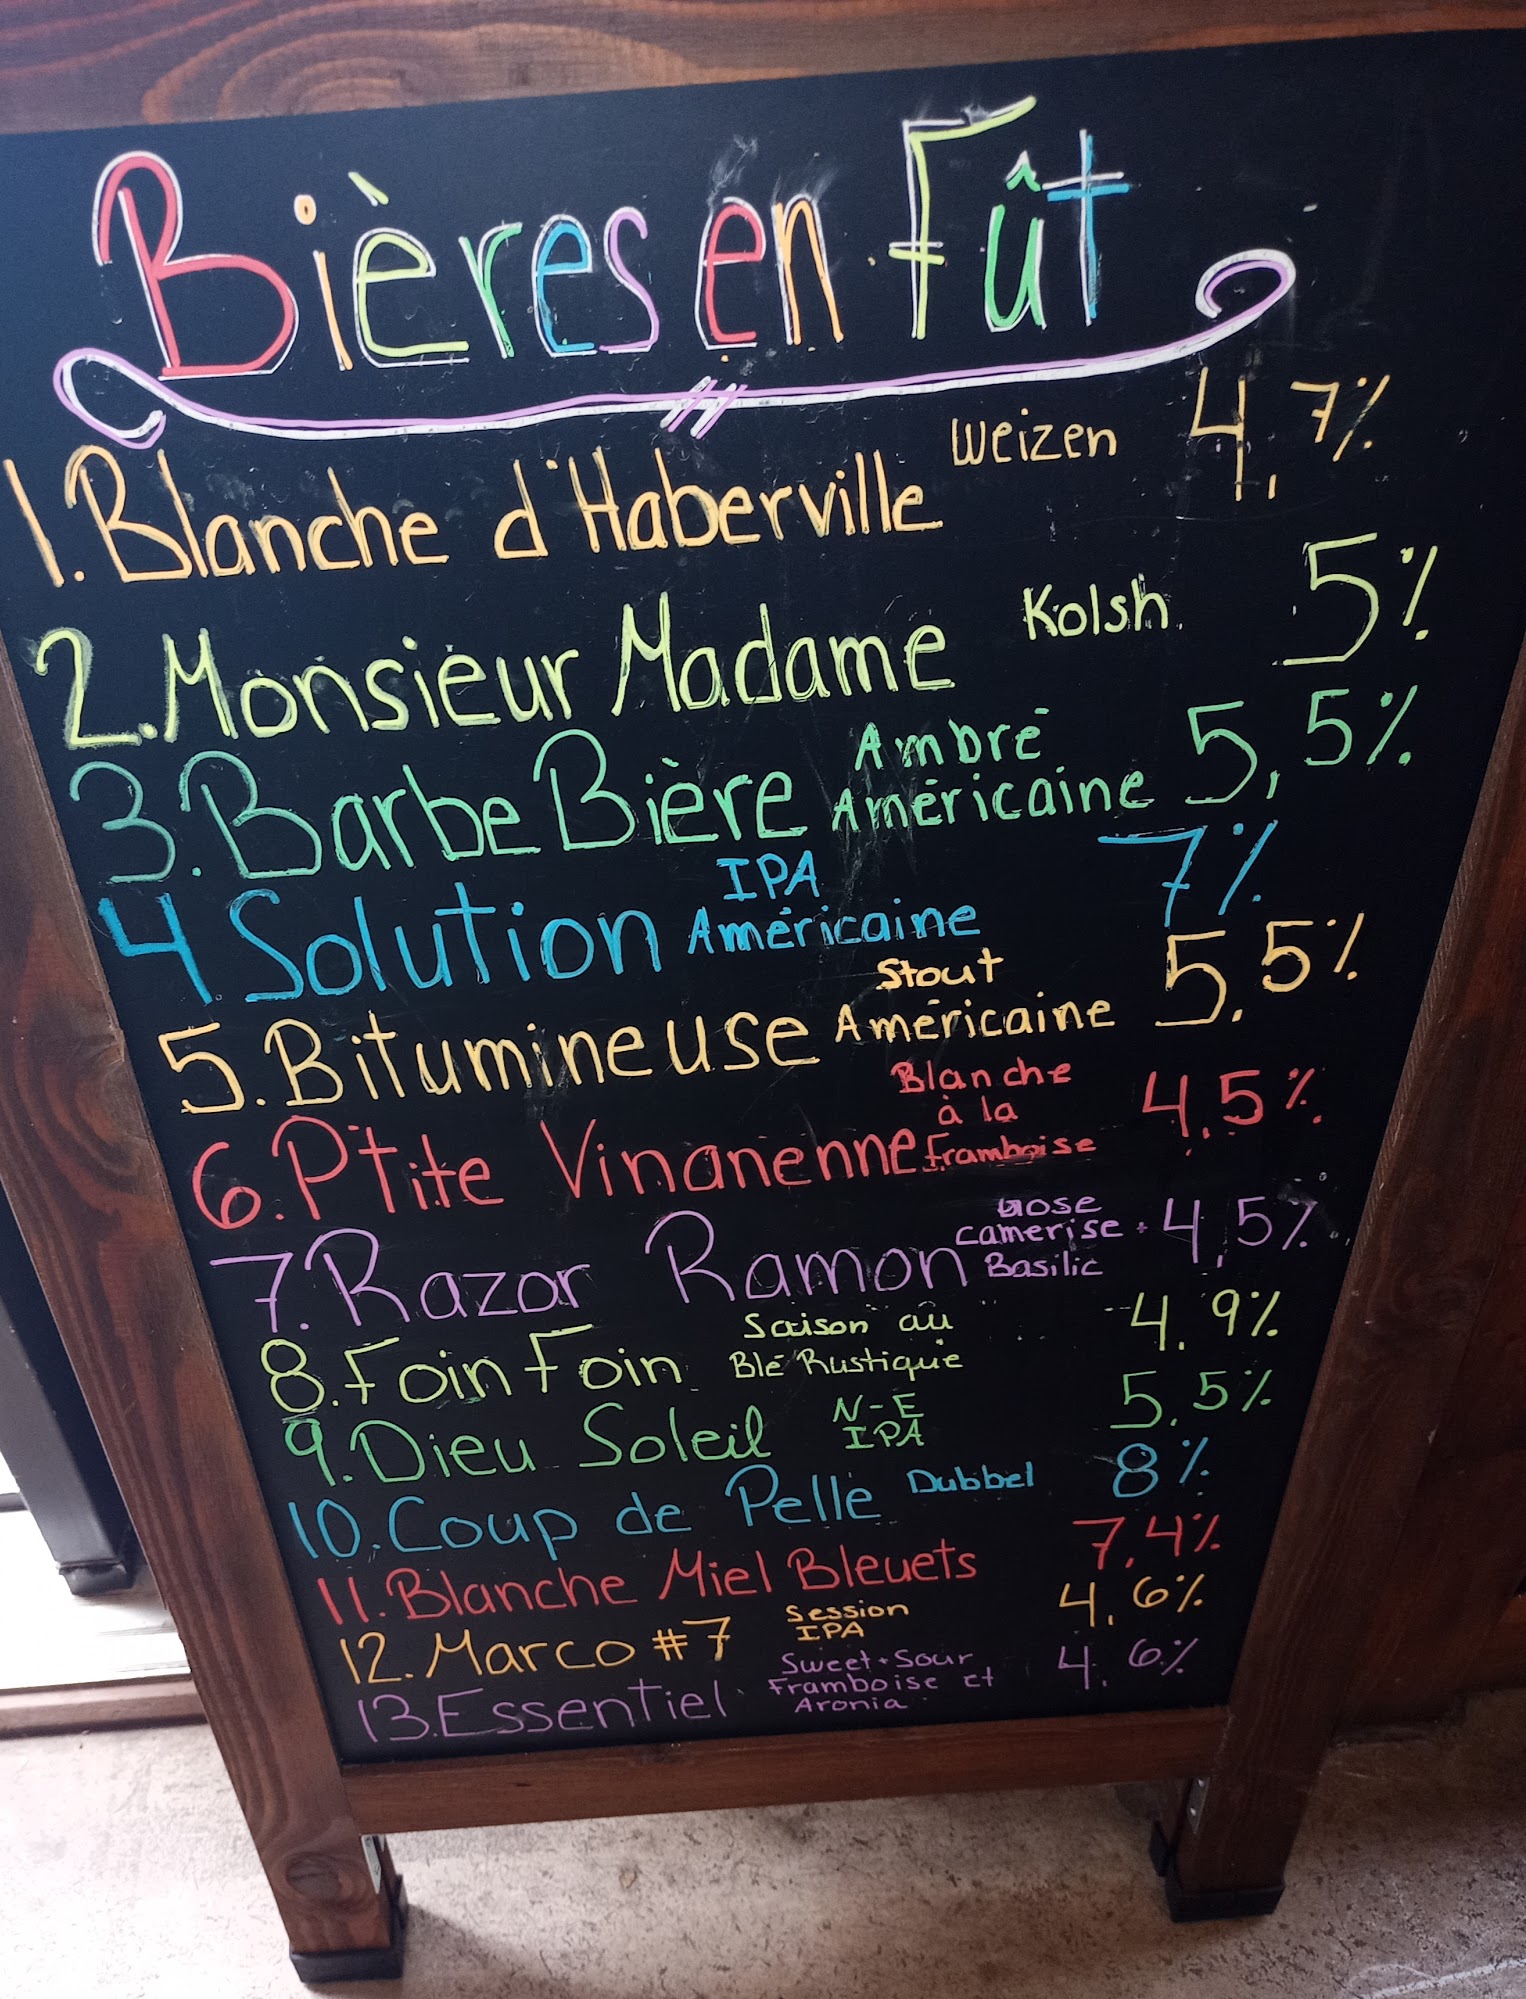 Bières en Fût
1. Blanche d'Haberville Weizen 4,7%
2. Monsieur Madame Kolsh 5%
3. Barbe Bière Ambré Américaine 5,5%
4. Solution IPA Américaine 7%
5. Bitumineuse Stout Américaine 5,5%
6. Ptite Vinanenne Blanche à la Framboise 4,5%
7. Razor Ramon Gose camerise + Basilic 4,5%
8. Foin Foin Saison au Blé Rustique 4,9%
9. Dieu Soleil N-E IPA 5,5%
10. Coup de Pelle Dubbel 8%
11. Blanche Miel Bleuets 7,4%
12. Marco #7 Session IPA 4,6%
13. Essentiel Sweet + Sour Framboise et Aronia 4,6%